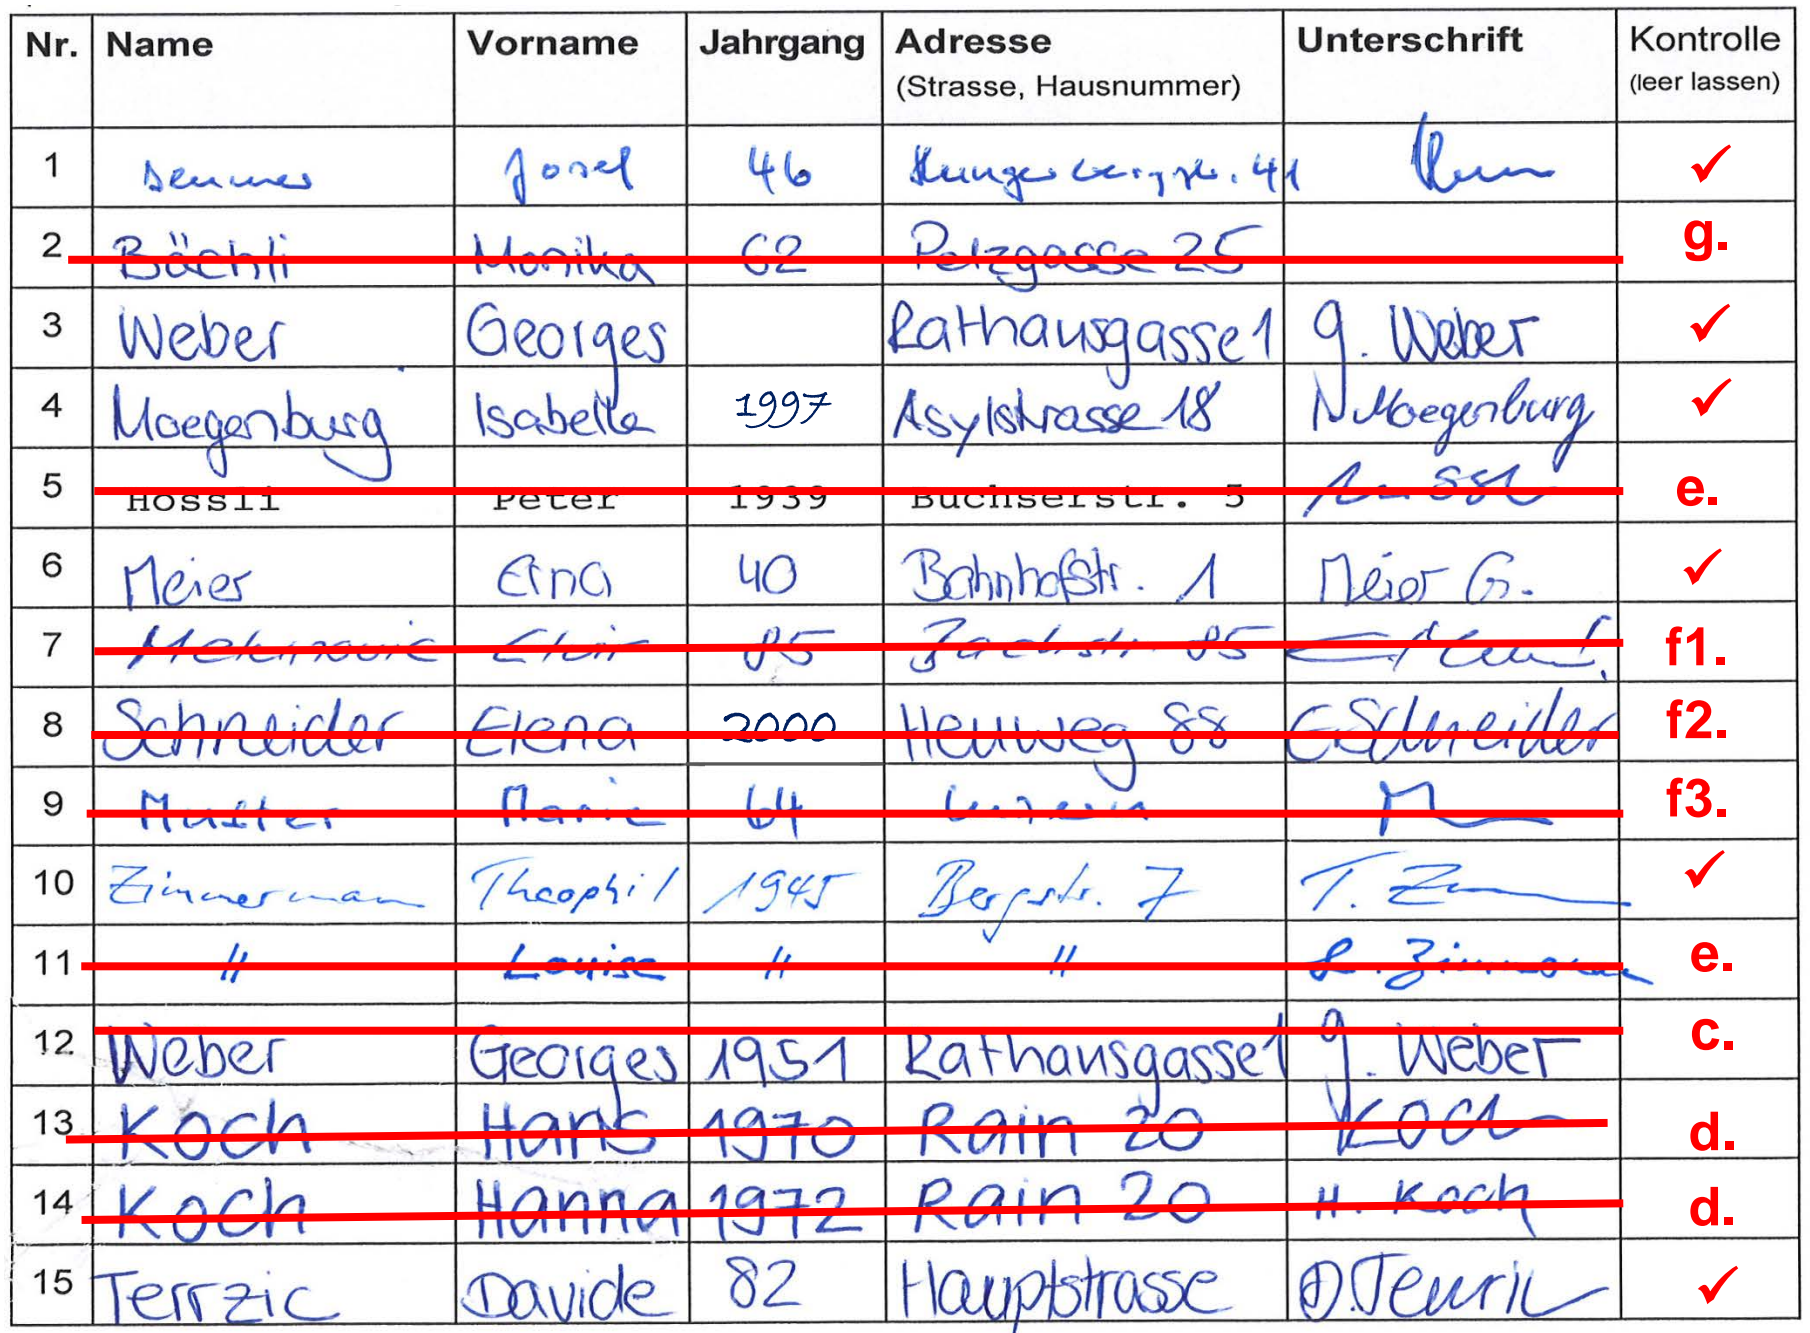 Nr. Name Vorname Jahrgang Adresse Unterschrift Kontrolle
(Strasse, Hausnummer) (leer lassen)
1 Josef 46 41 ✓
2 Bächli Monika 62 Pelzgasse 25 g.
3 Weber Georges Rathausgasse 1 G. Weber ✓
4 Moegenburg Isabella 1997 Asylstrasse 18 Moegenburg ✓
5 Hössli Peter 1939 Buchserstr. 5 e.
6 Meier Gina 40 Bahnhofstr. 1 Meier G. ✓
7 85 Bachstr. 85 f1.
8 Schneider Elena 2000 Heuweg 88 E. Schneider f2.
9 Muster Maria 64 Luzern M f3.
10 Zimmermann Theophil 1945 Bergstr. 7 T. Z ✓
11 " Louise " " L. Zimmermann e.
12 Weber Georges 1951 Rathausgasse 1 G. Weber c.
13 Koch Hans 1970 Rain 20 Koch d.
14 Koch Hanna 1972 Rain 20 H. Koch d.
15 Terrzic Davide 82 Hauptstrasse ✓